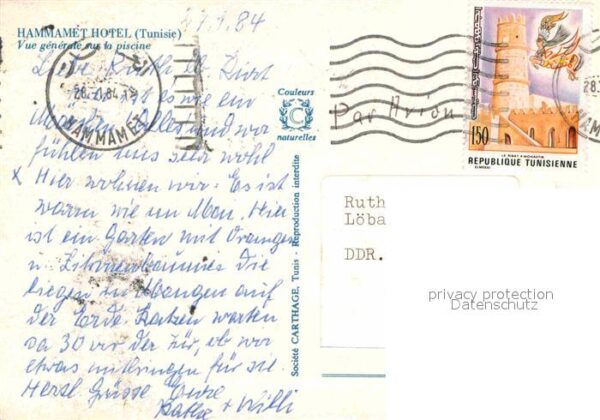 27.1.84
HAMMAMET HOTEL (Tunisie)
Vue générale sur la piscine
Liebe Ruth u. Dirst
es wie ein
und wir
fühlen uns sehr wohl
x Hier wohnen wir. Es ist
warm wie im Mai. Hier
ist ein Garten mit Orangen
u. Zitronenbäumen die
liegen in Mengen auf
der Erde. Katzen warten
ca 30 vor der Tür, ob wir
etwas mitbringen für sie.
Herzl. Grüsse Eure
Käthe + Willi
28.-1.84
HAMMAMET
Couleurs
C
naturelles
Société CARTHAGE, Tunis - Reproduction interdite
Par Avion
150
LE RIBAT
REPUBLIQUE TUNISIENNE
28.
HAMMA
Ruth
Löba
DDR.
privacy protection
Datenschutz